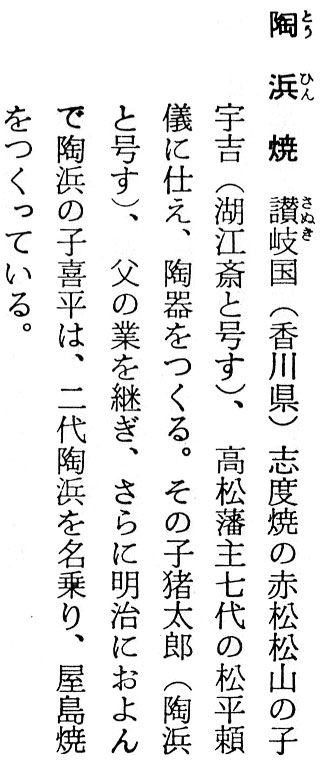 陶浜焼　讃岐国（香川県）志度焼の赤松松山の子
宇吉（湖江斎と号す）、高松藩主七代の松平頼
儀に仕え、陶器をつくる。その子猪太郎（陶浜
と号す）、父の業を継ぎ、さらに明治におよん
で陶浜の子喜平は、二代陶浜を名乗り、屋島焼
をつくっている。
とう
ひん
さぬき